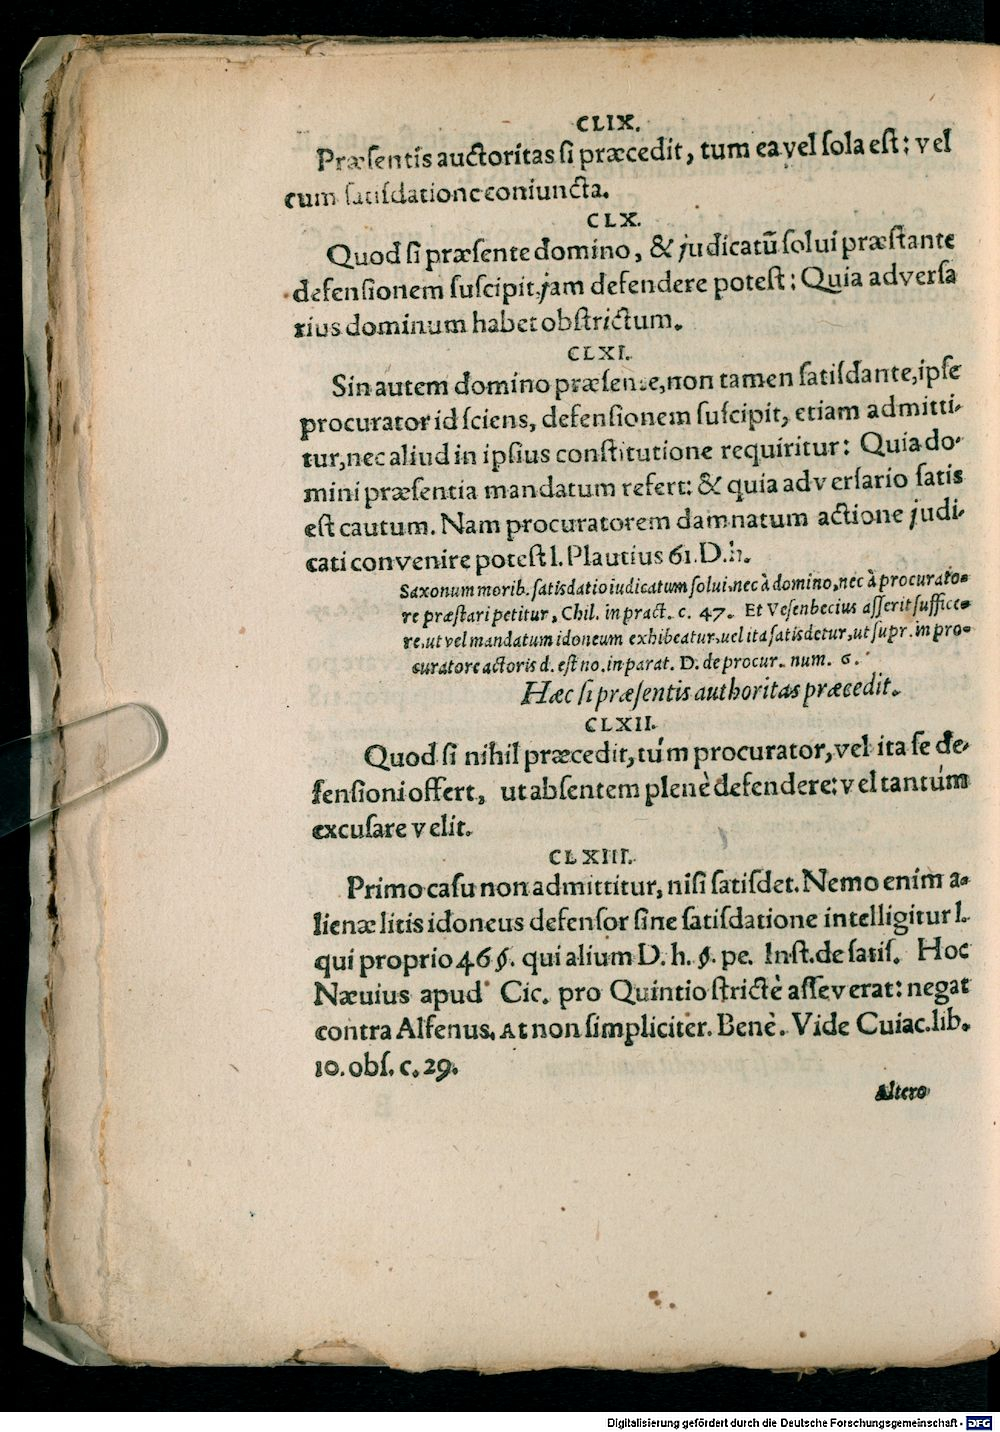 CLIX.
Præsentis auctoritas si præcedit, tum ea vel sola est: vel
cum satisdatione coniuncta.
CLX.
Quod si præsente domino, & judicatū solui præstante
defensionem suscipit, jam defendere potest: Quia adversa
rius dominum habet obstrictum.
CLXI.
Sin autem domino præsente, non tamen satisdante, ipse
procurator id sciens, defensionem suscipit, etiam admitti-
tur, nec aliud in ipsius constitutione requiritur: Quia do-
mini præsentia mandatum refert: & quia adversario satis
est cautum. Nam procuratorem damnatum actione judi-
cati convenire potest l. Plautius 61. D. h.
Saxonum morib. satisdatio iudicatum solui, nec à domino, nec à procurato-
re præstari petitur, Chil. in pract. c. 47. Et Vesenbecius asserit suffice-
re, ut vel mandatum idoneum exhibeatur, uel ita satisdetur, ut supr. in pro-
curatore actoris d. est no. in parat. D. de procur. num. 6.
Hæc si præsentis authoritas præcedit.
CLXII.
Quod si nihil præcedit, tùm procurator, vel ita se de-
fensioni offert, ut absentem plenè defendere: vel tantùm
excusare velit.
CLXIII.
Primo casu non admittitur, nisi satisdet. Nemo enim a-
lienæ litis idoneus defensor sine satisdatione intelligitur l.
qui proprio 46 §. qui alium D. h. §. pe. Inst. de satis. Hoc
Næuius apud Cic. pro Quintio strictè asseverat: negat
contra Alfenus. At non simpliciter. Benè. Vide Cuiac. lib.
10. obs. c. 29.
Altero
Digitalisierung gefördert durch die Deutsche Forschungsgemeinschaft - DFG